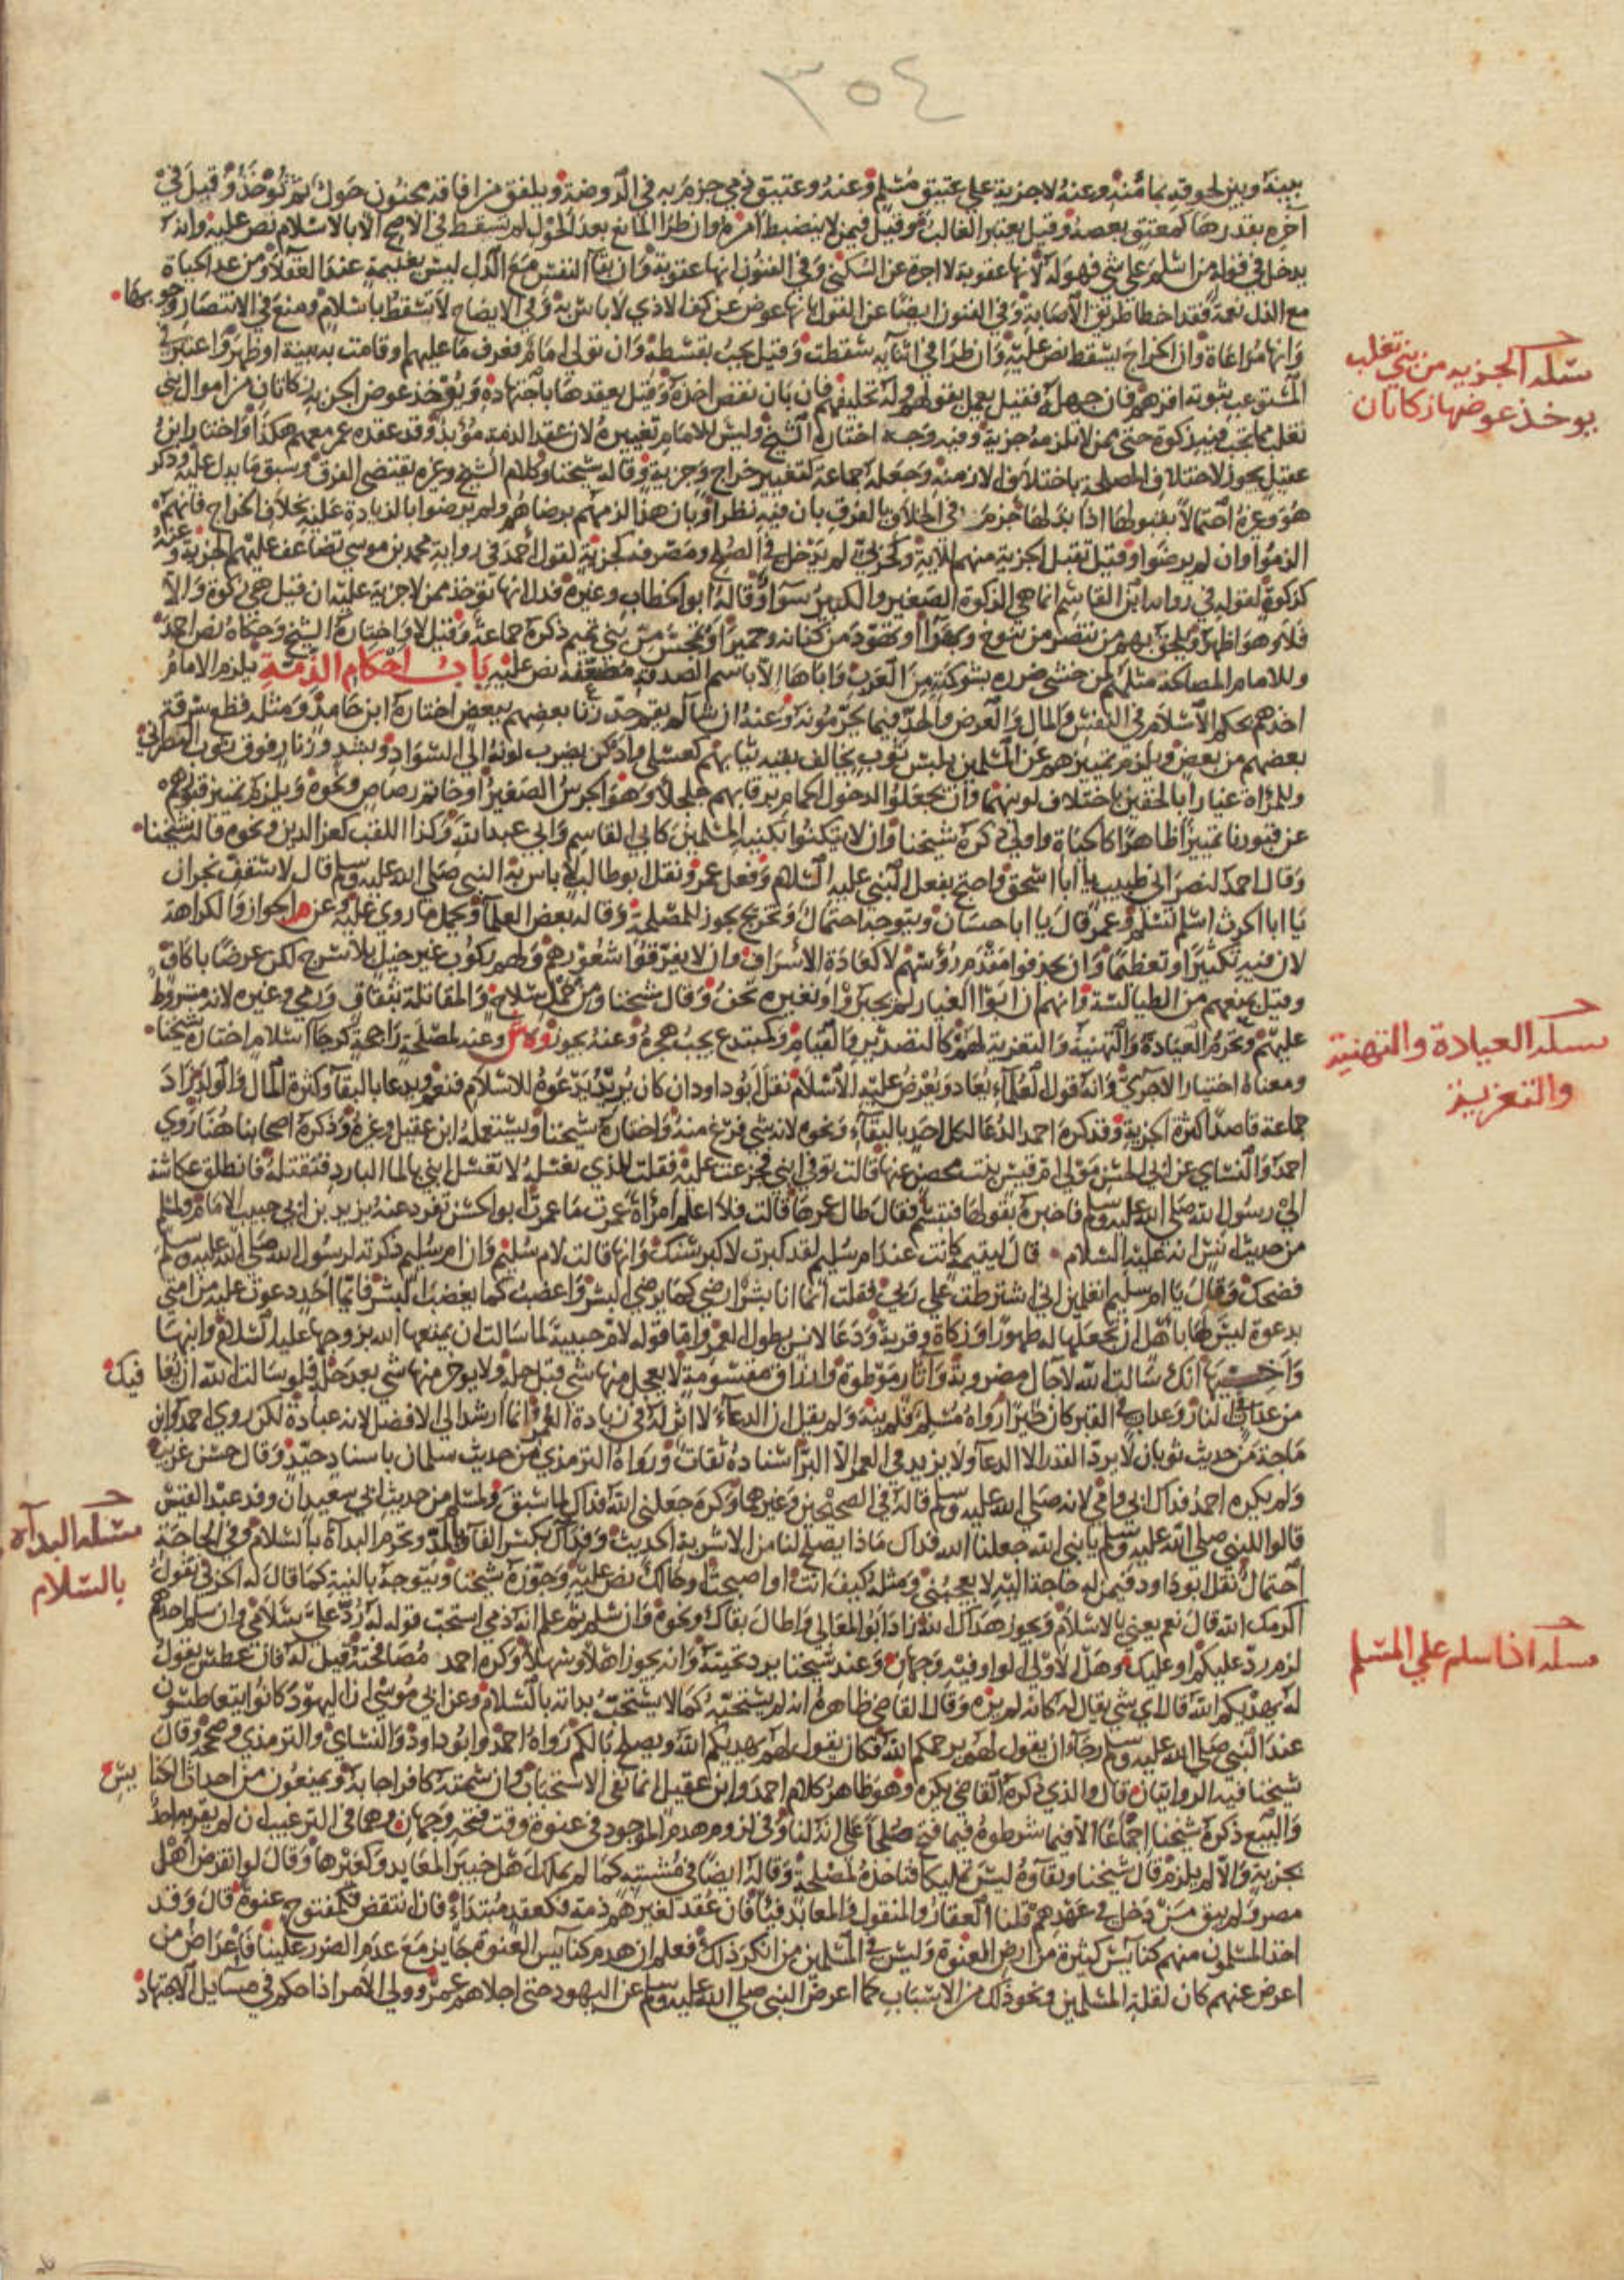 ٣٥٤
بينه وبين لحوقه بمأمنه وعنه لا جزية على عتيق مسلم وعنه وعتيق ذمي جزم به في الروضة ويلفق من افاقة مجنون حول ثم تؤخذ وقيل في
آخره بقدرها كمعتق بعضه وقيل يعتبر الغالب وقيل فيمن لا ينضبط امره وان طرأ المانع بعد الحول لم تسقط في الاصح الا بالاسلام نص عليه وانه
يدخل في قوله من اسلم على شي فهو له لانها عقوبة لا اجرة عن السكنى وفي الفنون انها عقوبة وان بقآ النفس مع الذل ليس بغنيمة عند العقلا ومن عد الحياة
مع الذل نعمة فقد اخطا طريق الاصابة وفي الفنون ايضا عن القول بانها عوض عن كف الاذي لا باس به وفي الايضاح لا تسقط باسلام ومنع في الانتصار وجوبها
وانها مراعاة وان الخراج يسقط نص عليه وان طرا في اثنآيه سقطت وقيل يجب بقسطه وان تولى امام فعرف ما عليهم او قامت به بينة او ظهر واعتبر في
المستوعب ثبوته اقرهم فان جهله فقيل يعمل بقولهم وله تحليفهم فان بان نقص اخذه وقيل يعقدها باجتهاده ويؤخذ عوض الجزية زكاتان من اموال بني
تغلب مما تجب فيه زكوة حتى ممن لا تلزمه جزية وفيه وجه اختاره الشيخ وليس للامام تغييره لان عقد الذمة مؤبد وقد عقده عمر معهم هكذا واختار ابن
عقيل يجوز لاختلاف المصلحة باختلاف الازمنه وجعله جماعة كتغيير خراج وجزية وقاله شيخنا وكلام الشيخ وغيره يقتضي الفرق وسبق ما يدل عليه وذكر
هو وغيره احتمالا بقبولها اذا بذلها جزم في الخلاف بالفرق بان فيه نظرا وبان هذا الزمهم برضاهم ولم يرضوا بالزيادة عليه بخلاف الخراج فانهم
الزموا وان لم يرضوا وقيل تقبل الجزية منهم للآية وكحربي لم يدخل في الصلح ومصرفه كجزية لقول احمد في رواية محمد بن موسى تضاعف عليهم الجزية وعنه
كزكوة لقوله في رواية ابن القاسم انما هي الزكوة الصغير والكبير سوآ وقاله ابو الخطاب وغيره فدل انها تؤخذ ممن لا جزية عليه ان قيل هي زكوة والا
فلا وهو اظهر ويلحق بهم من تنصر من تنوخ وبهرا او تهود من كنانة وحمير او تمجس من بني تميم ذكره جماعة وقيل لا واختاره الشيخ وحكاه نص احمد
وللامام المصالحة مثلهم لمن خشي ضرره بشوكته من العرب واباها الا باسم الصدقة مضعفه نص عليه باب احكام الذمة يلزم الامام
اخذهم بحكم الاسلام في النفس والمال والعرض والحد فيما يحرمونه وعنه ان شآ لم يقم حد زنا بعضهم ببعض اختاره ابن حامد ومثله قطع سرقة
بعضهم من بعض ويلزم تمييزهم عن المسلمين بلبس ثوب يخالف بقيه ثيابهم كعسلي وادكن يضرب لونه الى السواد ويشد وزنار فوق ثوب النصراني
وللمراة غيار بالخفين باختلاف لونيهما وان يجعلوا لدخول الحمام برقابهم جلجلا وهو الجرس الصغير او خاتم رصاص ونحوه ويلزم تمييز قبورهم
عن قبورنا تمييزا ظاهرا كالحياة واولى ذكره شيخنا وان لا يتكنوا بكنية المسلمين كابي القاسم وابي عبدالله وكذا اللقب كعز الدين ونحوه قاله شيخنا
وقال احمد لنصراني طبيب يا ابا اسحق واحتج بفعل النبي عليه السلام وفعل عمر ونقل ابو طالب لا باس به النبي صلى الله عليه وسلم قال لاسقف نجران
يا ابا الحرث اسلم تسلم وعمر قال يا ابا حسان ويتوجه احتمال وتخريج يجوز للمصلحة وقاله بعض العلمآ ويحمل ما روي عليه وعن م الجواز والكراهة
لان فيه تكثيرا وتعظيما وان يحذفوا مقدم رؤسهم لا كعادة الاشراف وان لا يفرقوا شعورهم ولهم ركوب غير خيل بلا سرج لكن عرضا باكاف
وقيل يمنعهم من الطيالسة وانهم ان ابوا الغيار لم يجبروا ونغيره نحن وقال شيخنا ومن حمل سلاح والمقاتلة بثقاف ورمي وغيره لانه مشروط
عليهم وتحرم العيادة والتهنية والتعزية لهم كالتصدير والقيام وكمبتدع يجب هجره وعنه يجوز وهش وعنه لمصلحة راجحة كرجا اسلام اختاره شيخنا
ومعناه اختيار الاجري وانه قول العلمآء يعاد ويعرض عليه الاسلام نقل ابو داود ان كان يريد يدعوه للاسلام فنعم ويدعا بالبقآ وكثرة المال والولد زاد
جماعة قاصدا كثرة الجزية وقد كره احمد الدعا لكل احد بالبقآء ونحوه لانه شي فرغ منه واختاره شيخنا ويستعمله ابن عقيل وغيره وذكره اصحابنا هنا روي
احمد والنساي عن ابي الحسن مولى ام قيس بنت محصن عنها قالت توفي ابني فجزعت عليه فقلت للذي يغسله لا تغسل ابني بالما البارد فتقتله فانطلق عكاشة
الى رسول الله صلى الله عليه وسلم فاخبره بقولها فتبسم فقال طال عمرها قالت فلا اعلم امراة عمرت ما عمرت ابو الحسن تفرد عنه يزيد بن ابي حبيب الامام ولمسلم
من حديث انس انه عليه السلام قال ليتيمة كانت عند ام سليم لقد كبرت لا كبر سنك وانها قالت لام سليم وان ام سليم ذكرته لرسول الله صلى الله عليه وسلم
فضحك وقال يا ام سليم اتعلمين اني اشترطت على ربي فقلت انما انا بشر ارضي كما يرضي البشر واغضب كما يغضب البشر فايما احد دعوت عليه من امتي
بدعوة ليس لها باهل ان تجعلها له طهورا وزكاة وقربة ودعا لانس بطول العمر واما قوله لام حبيبة لما سالت ان يمتعها الله بزوجها عليه السلام وابيها
واخيها انك سالت الله لآجال مضروبة وآثار موطوة وارزاق مقسومة لا يعجل منها شي قبل حله ولا يوخر منها شي بعد حله فلو سالت الله ان يعافيك
من عذاب النار وعذاب القبر كان خيرا رواه مسلم فلم ينه ولم يقل ان الدعآء لا اثر له في زيادة العمر وانما ارشد الى الافضل لانه عبادة لكن روي احمد وابن
ماجة من حديث ثوبان لا يرد القدر الا الدعآ ولا يزيد في العمر الا البر اسناده ثقات ورواه الترمذي من حديث سلمان باسناد جيد وقال حسن غريب
ولم يكره احمد فداك ابي وامي لانه صلى الله عليه وسلم قاله في الصحيحين وغيرهما وكره جعلني الله فداك لما سبق ولمسلم من حديث ابي سعيد ان وفد عبد القيس
قالوا للنبي صلى الله عليه وسلم يا نبي الله جعلنا الله فداك ماذا يصلح لنا من الاشربة الحديث وفداك بكسر الفآ والمد وتحرم البدآة بالسلام وفي الحاجة
احتمال نقل ابو داود فيمن له حاجة اليه لا يعجبني ومثله كيف انت او اصبحت او حالك نص عليه وجوزه شيخنا ويتوجه بالنية كما قال له الحربي نقول
اكرمك الله قال نعم يعني بالاسلام ويجوز هداك الله زاد ابو المعالي واطال بقاك ونحوه وان سلم ثم علم انه ذمي استحب قوله له رد علي سلامي وان سلم احدهم
لزم رد عليكم او عليك وهل الاولى الواو فيه وجهان وعند شيخنا يرد تحيته وانه يجوز اهلا وسهلا وكره احمد مصافحته قيل له فان عطس يقول
له يهديكم الله قال اي شي يقال له كانه لم يره وقال القاضي ظاهره انه لم يستحبه كما لا يستحب بداته بالسلام وعن ابي موسى ان اليهود كانوا يتعاطسون
عند النبي صلى الله عليه وسلم رجآ ان يقول لهم يرحمكم الله فكان يقول لهم يهديكم الله ويصلح بالكم رواه احمد وابو داود والنساي والترمذي وصححه وقال
شيخنا فيه الروايتان قال والذي ذكره القاضي يكره وهو ظاهر كلام احمد وابن عقيل انما نفى الاستحباب وان شمته كافر اجابه ويمنعون من احداث الكنايس
والبيع ذكره شيخنا اجماعا الا فيما شرطوه فيما فتح صلحا على انه لنا وفي لزوم هدم الموجود في عنوة وقت فتحه وجهان وهما في الترغيب ان لم يقر به احد
بجزية والا لم يلزم قال شيخنا وبقآوه ليس تمليكا فناخذه لمصلحة وقاله ايضا في مشتبه كما لم يملك اهل خيبر المعابد وكغيرها وقال لو انقرض اهل
مصر ولم يبق من دخل في عهدهم قلنا العقار والمنقول والمعابد فيئا فان عقد لغيرهم ذمة فكعقد مبتداء فان انتقض فكمفتوح عنوة قال وقد
اخذ المسلمون منهم كنآيس كثيرة من ارض العنوة وليس في المسلمين من انكر ذلك فعلم ان هدم كنآيس العنوة جايز مع عدم الضرر علينا فاعراض من
اعرض عنهم كان لقلة المسلمين ونحو ذلك من الاسباب كما اعرض النبي صلى الله عليه وسلم عن اليهود حتى اجلاهم عمر وولي الامر اذا حكم في مسايل الاجتهاد
مسلة الجزية من بني تغلب
يوخذ عوضها زكاتان
مسلة العيادة والتهنية
والتعزية
مسلة البدآة
بالسلام
مسلة اذا سلم علي المسلم